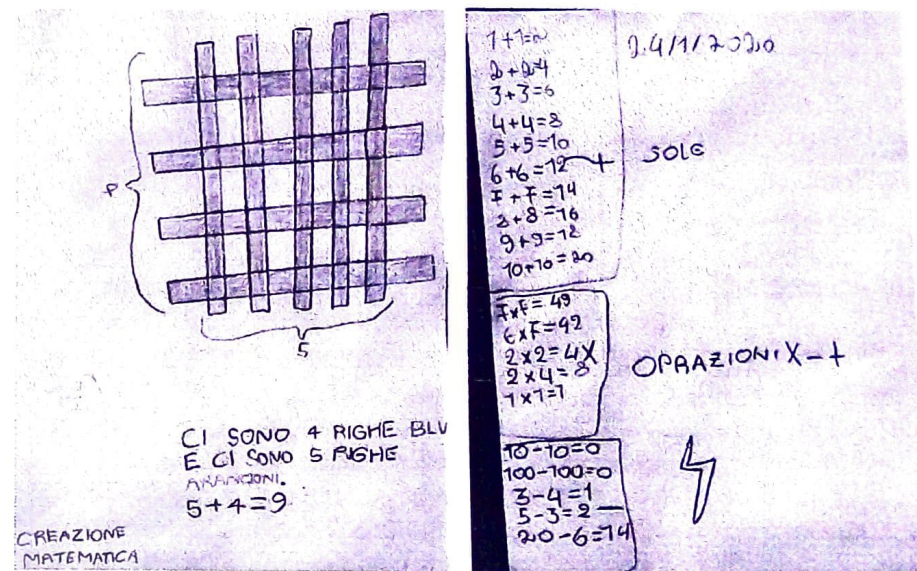 4
5
CI SONO 4 RIGHE BLU
E CI SONO 5 RIGHE
ARANCIONI.
5+4=9
CREAZIONE
MATEMATICA
24/1/2020
1+1=2
2+2=4
3+3=6
4+4=8
5+5=10
6+6=12 +
SOLE
7+7=14
8+8=16
9+9=18
10+10=20
7x7=49
6x7=42
2x2=4X
2x4=8
1x1=1
OPRAZIONI X-+
10-10=0
100-100=0
3-4=1
5-3=2 -
20-6=14